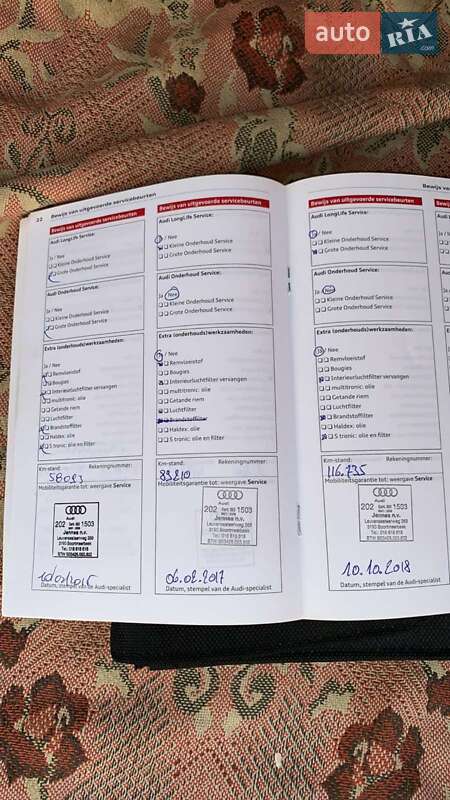 auto RIA .com
22 Bewijs van uitgevoerde servicebeurten
Bewijs van uitgevoerde servicebeurten
Audi LongLife Service:
Ja / Nee
Kleine Onderhoud Service
Grote Onderhoud Service
Audi Onderhoud Service:
Ja / Nee
Kleine Onderhoud Service
Grote Onderhoud Service
Extra (onderhouds)werkzaamheden:
Ja / Nee
Remvloeistof
Bougies
Interieurluchtfilter vervangen
multitronic: olie
Getande riem
Luchtfilter
Brandstoffilter
Haldex: olie
S tronic: olie en filter
Km-stand: Rekeningnummer:
58093
Mobiliteitsgarantie tot: weergave Service
Audi
202 1503
Jennes n.v.
Leuvensesteenweg 369
3190 Boortmeerbeek
Datum, stempel van de Audi-specialist
Bewijs van uitgevoerde servicebeurten
Audi LongLife Service:
Ja / Nee
Kleine Onderhoud Service
Grote Onderhoud Service
Audi Onderhoud Service:
Ja / Nee
Kleine Onderhoud Service
Grote Onderhoud Service
Extra (onderhouds)werkzaamheden:
Ja / Nee
Remvloeistof
Bougies
Interieurluchtfilter vervangen
multitronic: olie
Getande riem
Luchtfilter
Brandstoffilter
Haldex: olie
S tronic: olie en filter
Km-stand: Rekeningnummer:
83210
Mobiliteitsgarantie tot: weergave Service
Audi
202 1503
Jennes n.v.
Leuvensesteenweg 369
3190 Boortmeerbeek
06.02.2017
Datum, stempel van de Audi-specialist
Bewijs va
Bewijs van uitgevoerde servicebeurten
Audi LongLife Service:
Ja / Nee
Kleine Onderhoud Service
Grote Onderhoud Service
Audi Onderhoud Service:
Ja / Nee
Kleine Onderhoud Service
Grote Onderhoud Service
Extra (onderhouds)werkzaamheden:
Ja / Nee
Remvloeistof
Bougies
Interieurluchtfilter vervangen
multitronic: olie
Getande riem
Luchtfilter
Brandstoffilter
Haldex: olie
S tronic: olie en filter
Km-stand: Rekeningnummer:
116.735
Mobiliteitsgarantie tot: weergave Service
Audi
202 1503
Jennes n.v.
Leuvensesteenweg 369
3190 Boortmeerbeek
10.10.2018
Datum, stempel van de Audi-specialist